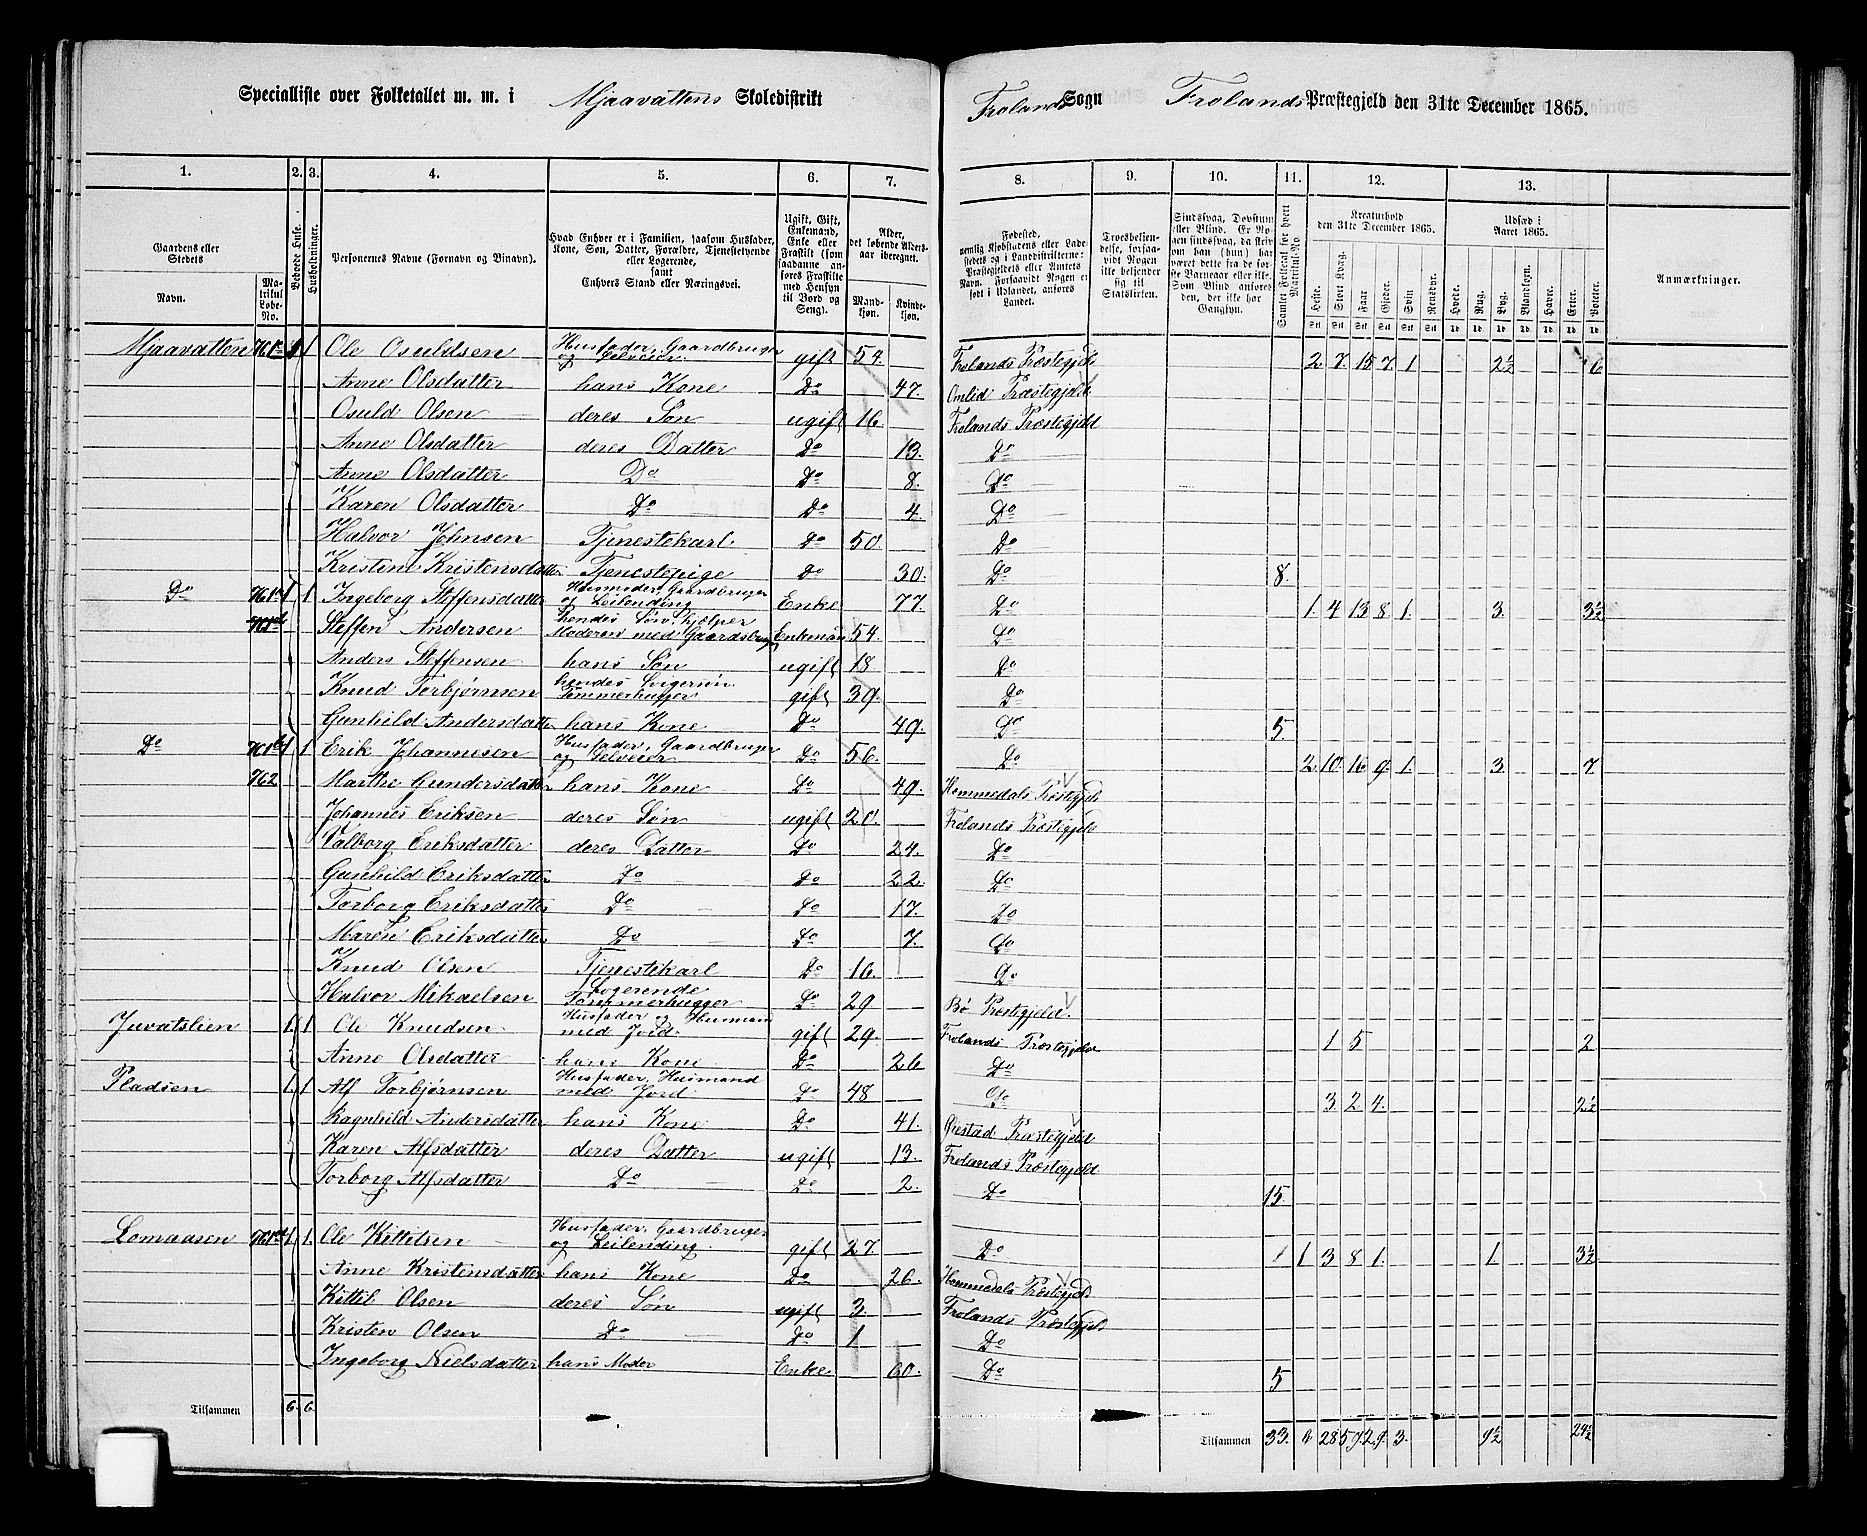 Specialliste over Folketallet m. m. i Mjaavattens Skoledistrikt Frolands Sogn Frolands Præstegjeld den 31te December 1865.
1. 2. 3. 4. 5. 6. 7. 8. 9. 10. 11. 12. 13.
Gaardens eller Stedets Navn. Matrikul Løbe-No. Beboede Huse. Husholdninger. Personernes Navne (Fornavn og Binavn). Hvad Enhver er i Familien, saasom Husfader, Kone, Søn, Datter, Forældre, Tjenestetyende eller Logerende, samt Enhvers Stand eller Næringsvei. Ugift, Gift, Enkemand, Enke eller Fraskilt (som saadanne anføres Fraskilte med Hensyn til Bord og Seng). Alder, det løbende Aldersaar iberegnet. Mandkjøn. Kvindekjøn.
Fødested, nemlig Kjøbstadens eller Ladestedets og i Landdistrikterne: Præstegjeldets eller Amtets Navn. Forsaavidt Nogen er født i Udlandet, anføres Landet. Troesbekjendelse, forsaavidt Nogen ikke bekjender sig til Statskirken. Sindssvag, Døvstum eller Blind. Er Nogen sindssvag, da skriv om han (hun) har været dette fra de første Barneaar eller ikke. Som Blind anføres den, der ikke har Gangsyn. Samlet Folketal for hvert Matrikul-No. Kreaturhold den 31te December 1865. Heste. Stort Kvæg. Faar. Gjeder. Svin. Rensdyr. Udsæd i Aaret 1865. Hvede. Rug. Byg. Blandkorn. Havre. Erter. Poteter. Anmærkninger.
Mjaavatten 1 1 Ole Osuldsen Husfader, Gaardbruger og Selveier gift 54. Frolands Præstegjeld 2. 7. 15. 7. 1. 2½ 6
Anne Olsdatter hans Kone Do 47. Omlid Præstegjeld.
Osuld Olsen deres Søn ugift 16. Frolands Præstegjeld
Anne Olsdatter deres Datter Do 13. Do
Anne Olsdatter Do Do 8. Do
Karen Olsdatter Do Do 4. Do
Halvor Johnsen Tjenestekarl Do 50. Do
Kristine Kristensdatter Tjenestepige Do 30. Do 8.
Do 1 1 Ingeborg Steffensdatter Husmoder, Gaardbruger og Leilending Enke 77. Do 1. 4 13 8. 1. 3. 3½
Steffen Andersen hendes Søn, hjelper Moderen med Gaardsbrug Enkeman 54. Do
Anders Steffensen hans Søn ugift 18. Do
Knud Torbjørnsen hendes Svigersøn Tømmerhugger gift 39. Do
Gunhild Andersdatter hans Kone Do 49. Do 5.
Do 1 1 Erik Johannesen Husfader, Gaardbruger og Selveier Do 56. Do 2. 10. 16 9. 1. 3. 7
No2 Marthe Gundersdatter hans Kone Do 49. Hommedals Præstegjeld
Johannes Eriksen deres Søn ugift 20. Frolands Præstegjeld
Valborg Eriksdatter deres Datter Do 24. Do
Gunhild Eriksdatter Do Do 22. Do
Torborg Eriksdatter Do Do 17. Do
Maren Eriksdatter Do Do 7. Do
Knud Olsen Tjenestekarl Do 16. Do
Halvor Mikaelsen Logerende Tømmerhugger Do 29 Bø Præstegjeld.
Juvatslien 1. 1 Ole Knudsen Husfader og Husmand med Jord. gift 29. Frolands Præstegjeld 1 5 2
Anne Olsdatter hans Kone Do 26 Do
Pladsen 1. 1 Alf Torbjørnsen Husfader, Husmand med Jord Do 48 Do 3. 2. 4. 2½
Ragnhild Andersdatter hans Kone Do 41. Øiestad Præstegjeld
Karen Alfsdatter deres Datter ugift 13. Frolands Præstegjeld
Torborg Alfsdatter Do Do 2. Do 15.
Lomaasen 1. 1. Ole Kittilsen Husfader, Gaardbruger og Leilending. gift 27. Do 1 1. 3 8 1. 1. 3½
Anne Kristensdatter hans Kone Do 26. Hommedals Præstegjeld
Kittil Olsen deres Søn ugift 3. Frolands Præstegjeld
Kristen Olsen Do Do 1 Do
Ingeborg Nielsdatter hans Moder Enke 60. Do 5
Tilsammen 6. 6. Tilsammen 33. 6 28 59. 29. 3. 9½ 24½